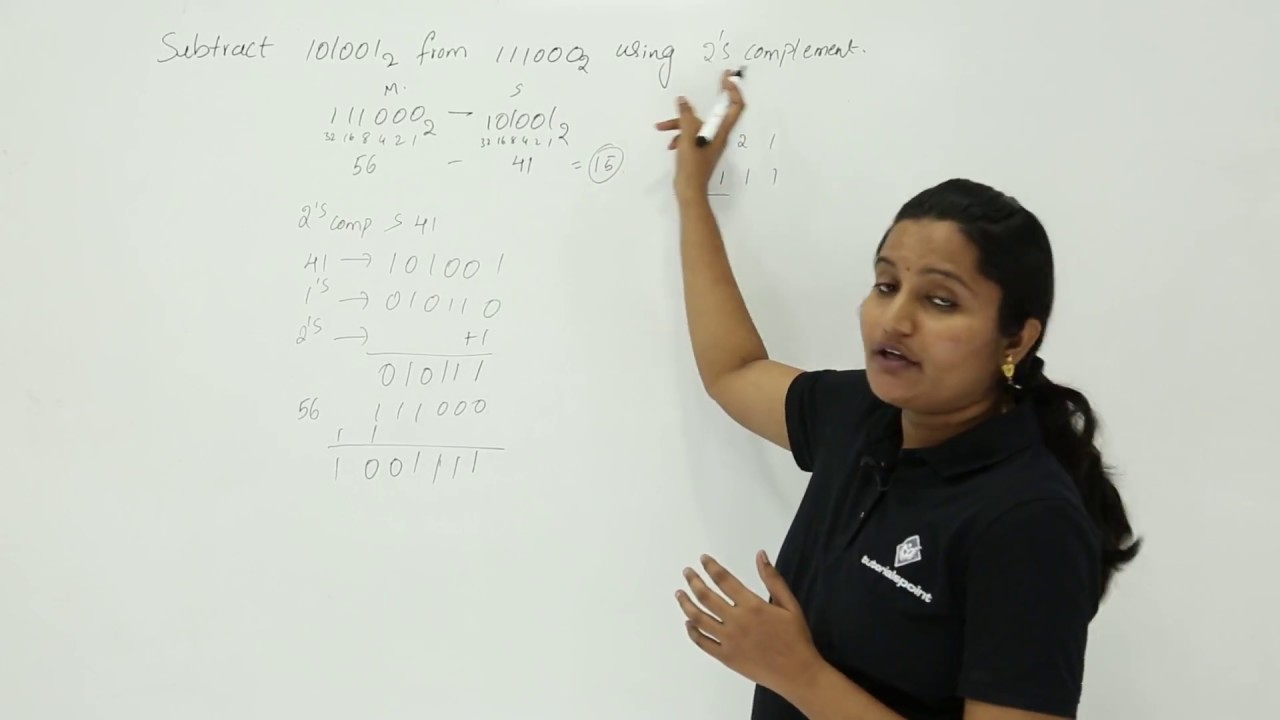 Subtract 101001₂ from 111000₂ using 2's complement.
M. S
111000₂ — 101001₂
32 16 8 4 2 1 32 16 8 4 2 1
56 - 41 = 15
2 1
1 1 1
2's comp S 41
41 → 101001
1's → 010110
2's → +1
010111
56 111000
1 1
1 001111
tutorialspoint